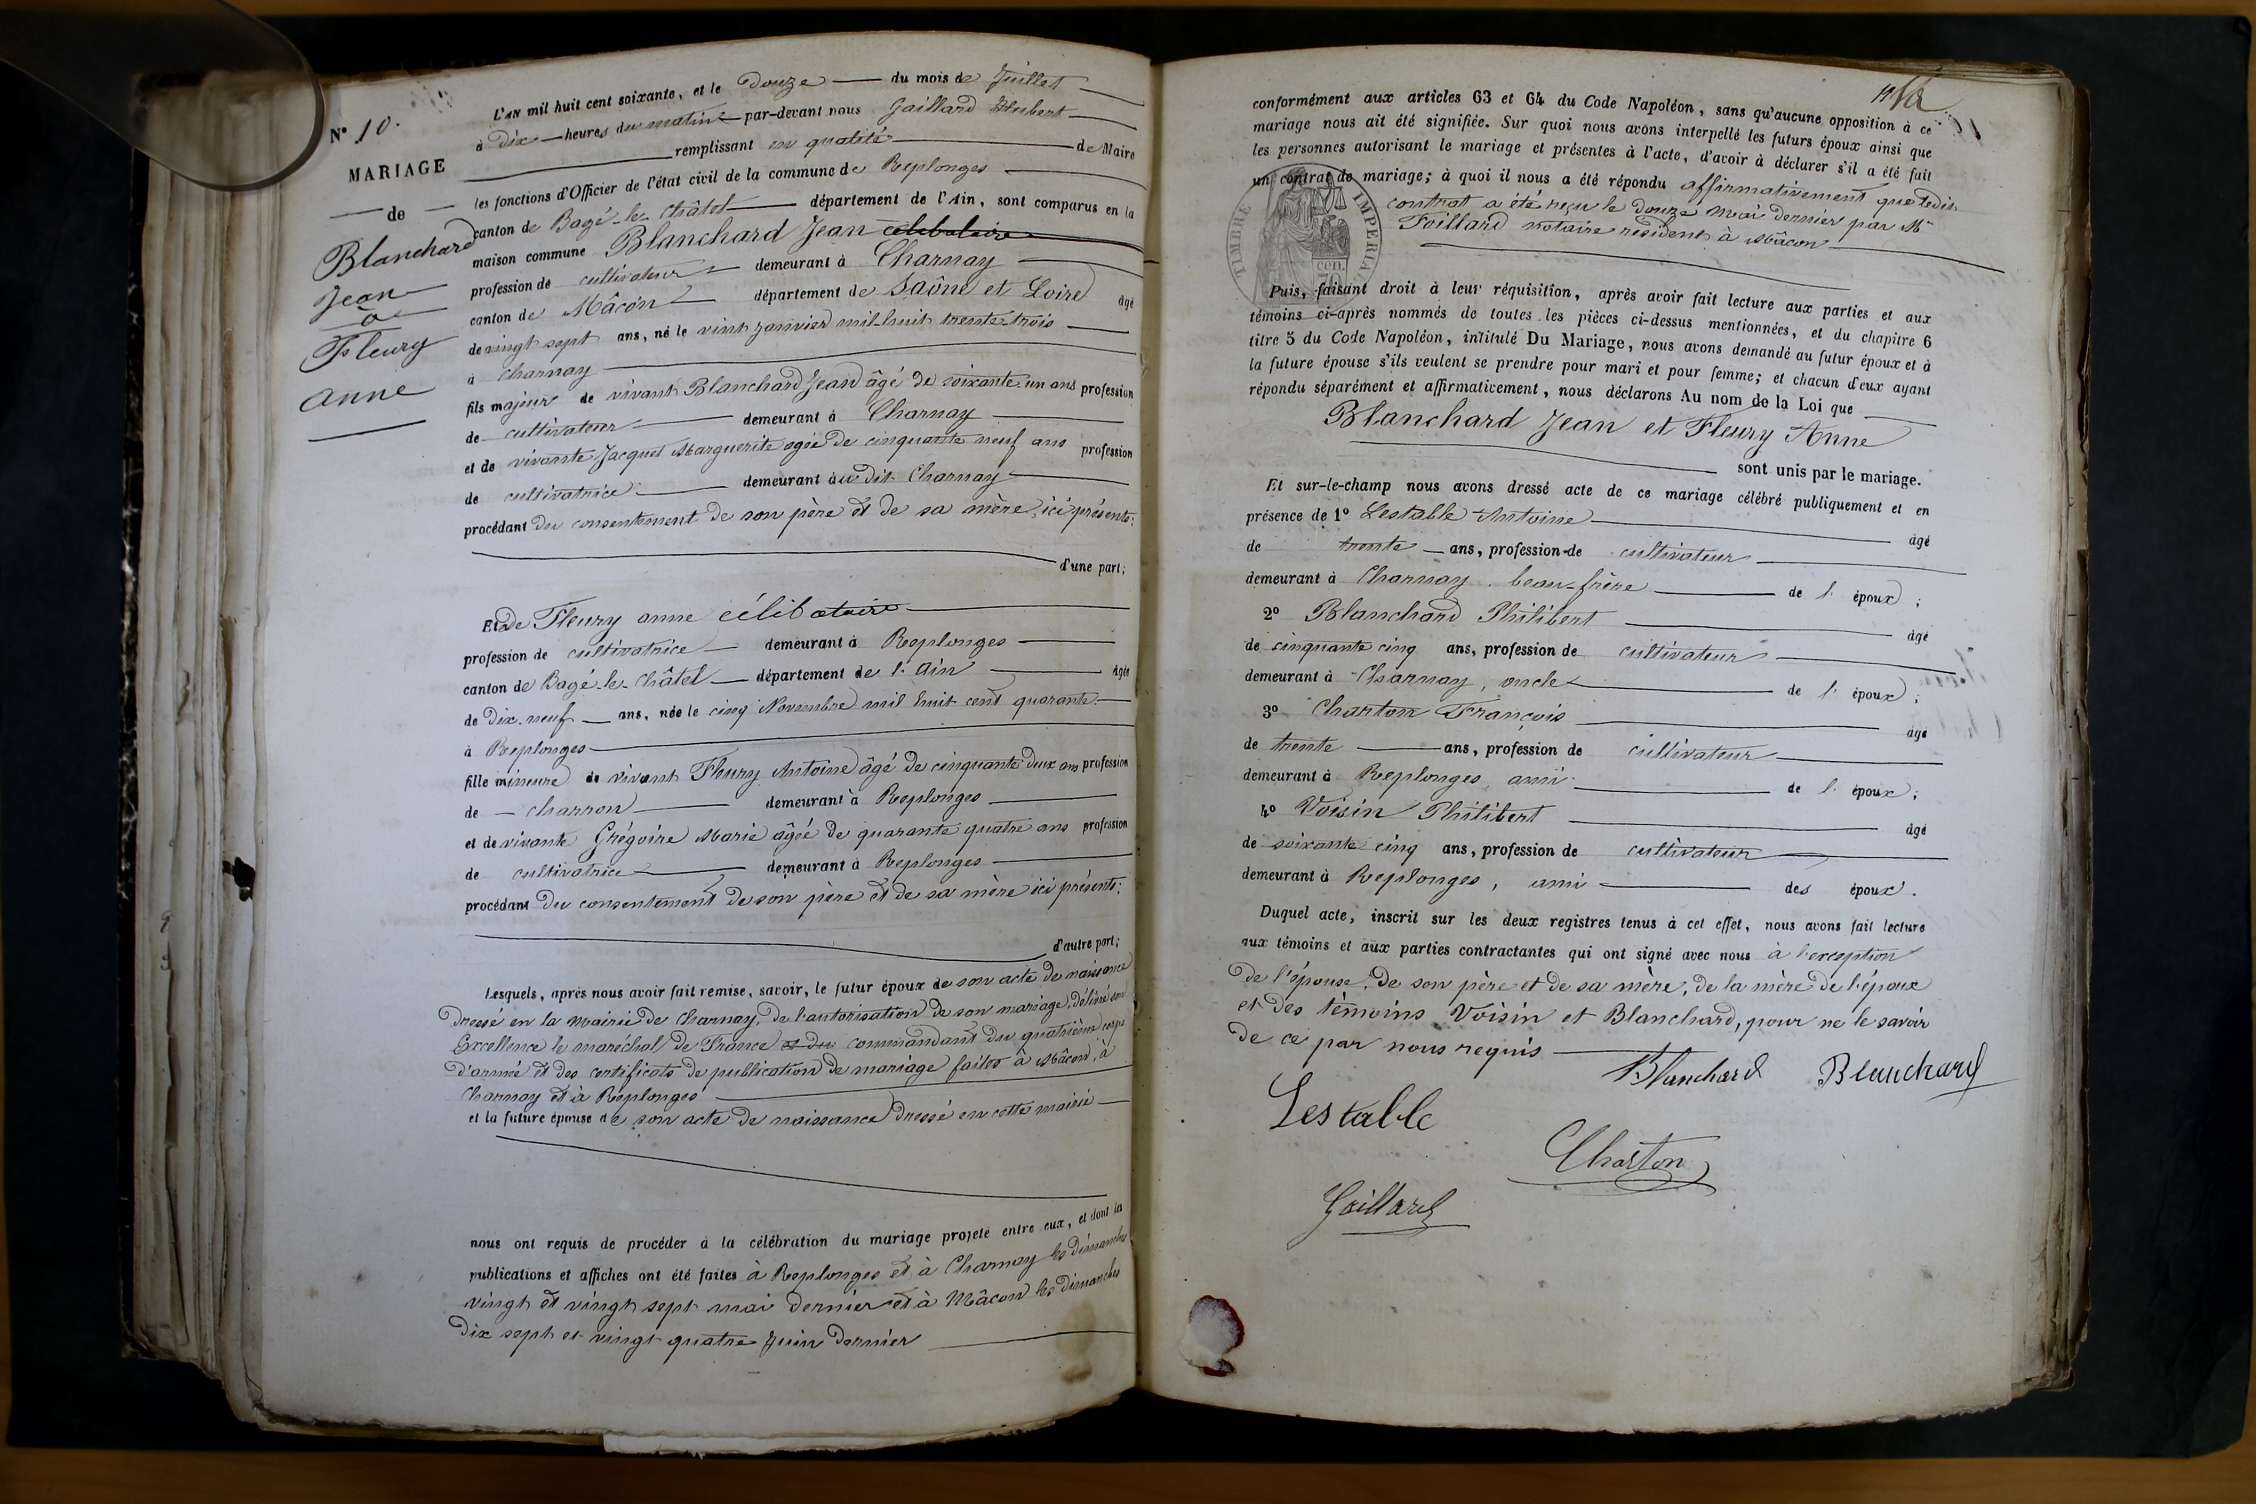 N° 10.
MARIAGE
de
Blanchard
Jean
à
Fleury
Anne
L'AN mil huit cent soixante, et le douze du mois de Juillet
à dix heures du matin par-devant nous Gaillard Hubert
remplissant en qualité de Maire
les fonctions d'Officier de l'état civil de la commune de Replonges
canton de Bagé-le-Châtel département de l'Ain, sont comparus en la
maison commune Blanchard Jean célibataire
profession de cultivateur demeurant à Charnay
canton de Mâcon département de Saône et Loire âgé
de vingt sept ans, né le vint janvier mil-huit trente-trois
à Charnay
fils majeur de vivant Blanchard Jean âgé de soixante un ans profession
de cultivateur demeurant à Charnay
et de vivante Jacquet Marguerite agée de cinquante neuf ans profession
de cultivatrice demeurant au dit Charnay
procédant du consentement de son père et de sa mère ici présents;
d'une part;
Et de Fleury anne célibataire
profession de cultivatrice demeurant à Replonges
canton de Bagé-le-Châtel département de l'Ain âgée
de dix-neuf ans, née le cinq Novembre mil huit cent quarante
à Replonges
fille mineure de vivant Fleury Antoine âgé de cinquante deux ans profession
de charron demeurant à Replonges
et de vivante Grégoire Marie âgée de quarante quatre ans profession
de cultivatrice demeurant à Replonges
procédant du consentement de son père et de sa mère ici présents;
d'autre part;
Lesquels, après nous avoir fait remise, savoir, le futur époux de son acte de naissance
dressé en la Mairie de Charnay, de l'autorisation de son mariage, délivré son
Excellence le maréchal de France et du commandant du quatrième corps
d'armé et des certificats de publication de mariage faites à Mâcon, à
Charnay et à Replonges
et la future épouse de son acte de naissance dressé en cette mairie
nous ont requis de procéder à la célébration du mariage projeté entre eux, et dont les
publications et affiches ont été faites à Replonges et à Charnay les dimanches
vingt et vingt sept mai dernier et à Mâcon les dimanches
dix sept et vingt quatre Juin dernier
11
conformément aux articles 63 et 64 du Code Napoléon, sans qu'aucune opposition à ce
mariage nous ait été signifiée. Sur quoi nous avons interpellé les futurs époux ainsi que
les personnes autorisant le mariage et présentes à l'acte, d'avoir à déclarer s'il a été fait
un contrat de mariage; à quoi il nous a été répondu affirmativement que ledit
contrat a été reçu le douze Mai dernier par Me
Foillard notaire résident à Mâcon
TIMBRE IMPERIAL
cen.
Puis, faisant droit à leur réquisition, après avoir fait lecture aux parties et aux
témoins ci-après nommés de toutes les pièces ci-dessus mentionnées, et du chapitre 6
titre 5 du Code Napoléon, intitulé Du Mariage, nous avons demandé au futur époux et à
la future épouse s'ils veulent se prendre pour mari et pour femme; et chacun d'eux ayant
répondu séparément et affirmativement, nous déclarons Au nom de la Loi que
Blanchard Jean et Fleury Anne
sont unis par le mariage.
Et sur-le-champ nous avons dressé acte de ce mariage célébré publiquement et en
présence de 1° Lestable Antoine âgé
de trente ans, profession de cultivateur
demeurant à Charnay, beau-frère de l'époux;
2° Blanchard Philibert âgé
de cinquante cinq ans, profession de cultivateur
demeurant à Charnay, oncle de l'époux;
3° Charton François âgé
de trente ans, profession de cultivateur
demeurant à Replonges, ami de l'époux;
4° Voisin Philibert âgé
de soixante cinq ans, profession de cultivateur
demeurant à Replonges, ami des époux.
Duquel acte, inscrit sur les deux registres tenus à cet effet, nous avons fait lecture
aux témoins et aux parties contractantes qui ont signé avec nous à l'exception
de l'épouse, de son père et de sa mère, de la mère de l'époux
et des témoins Voisin et Blanchard, pour ne le savoir
de ce par nous requis
Blanchard Blanchard
Lestable
Charton
Gaillard